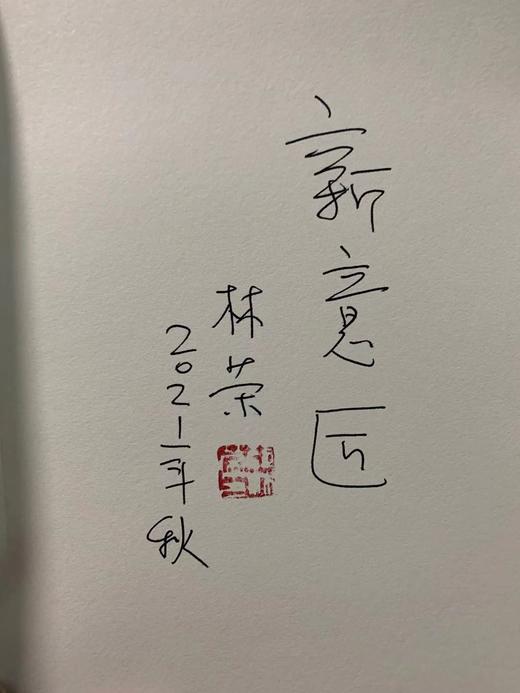 新意匠
林荣
2021年秋